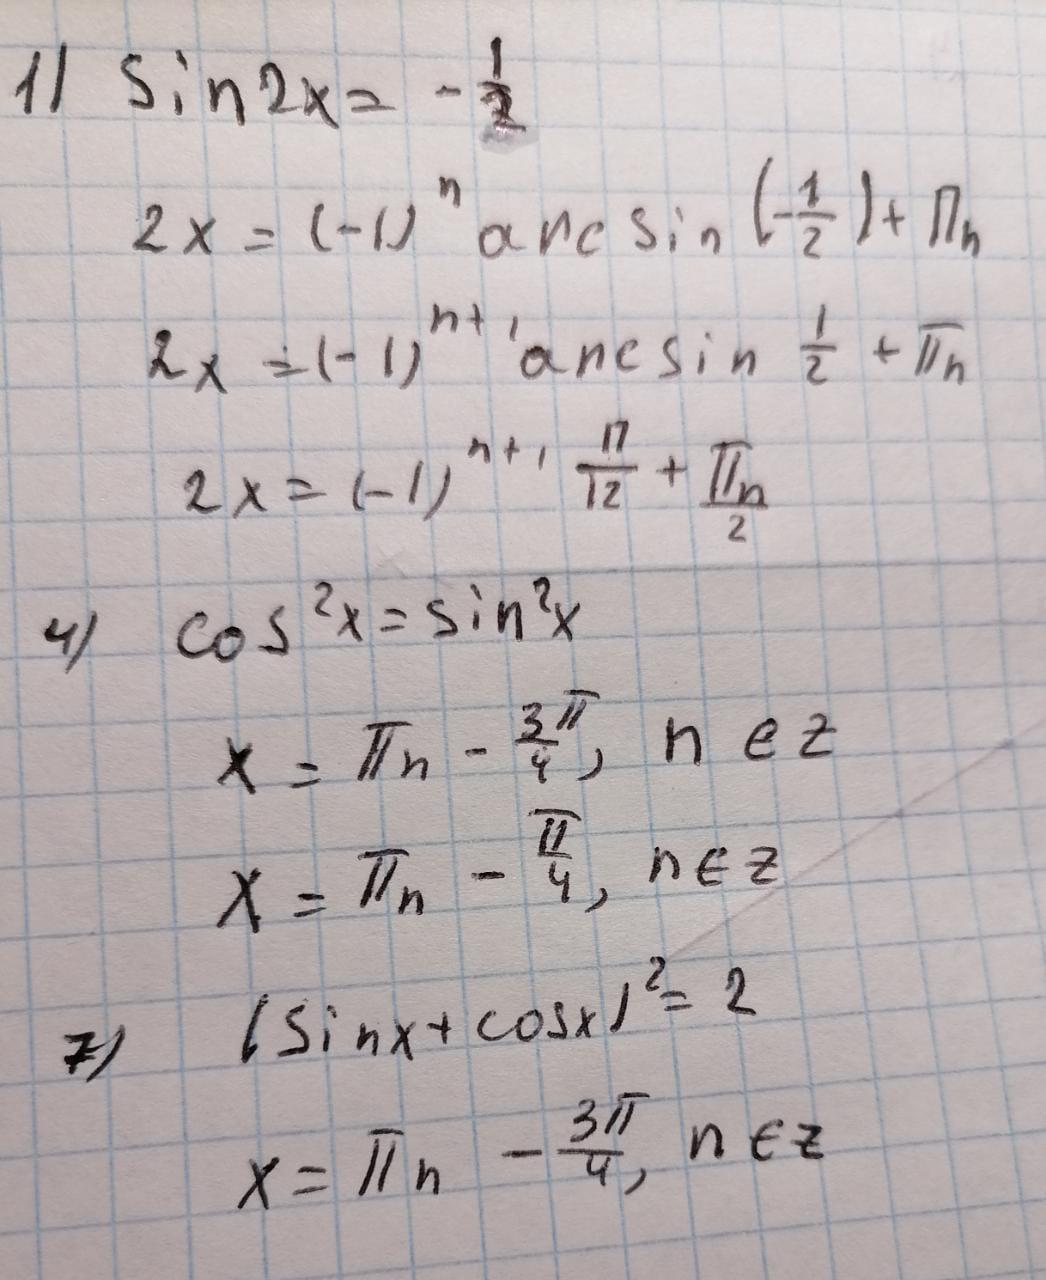 1) sin2x = -1/2
2x = (-1)^n arcsin (-1/2) + πn
2x = (-1)^n+1 arcsin 1/2 + πn
2x = (-1)^n+1 π/12 + πn/2
4) cos²x = sin²x
x = πn - 3π/4, n ∈ z
x = πn - π/4, n ∈ z
7) (sinx + cosx)² = 2
x = πn - 3π/4, n ∈ z